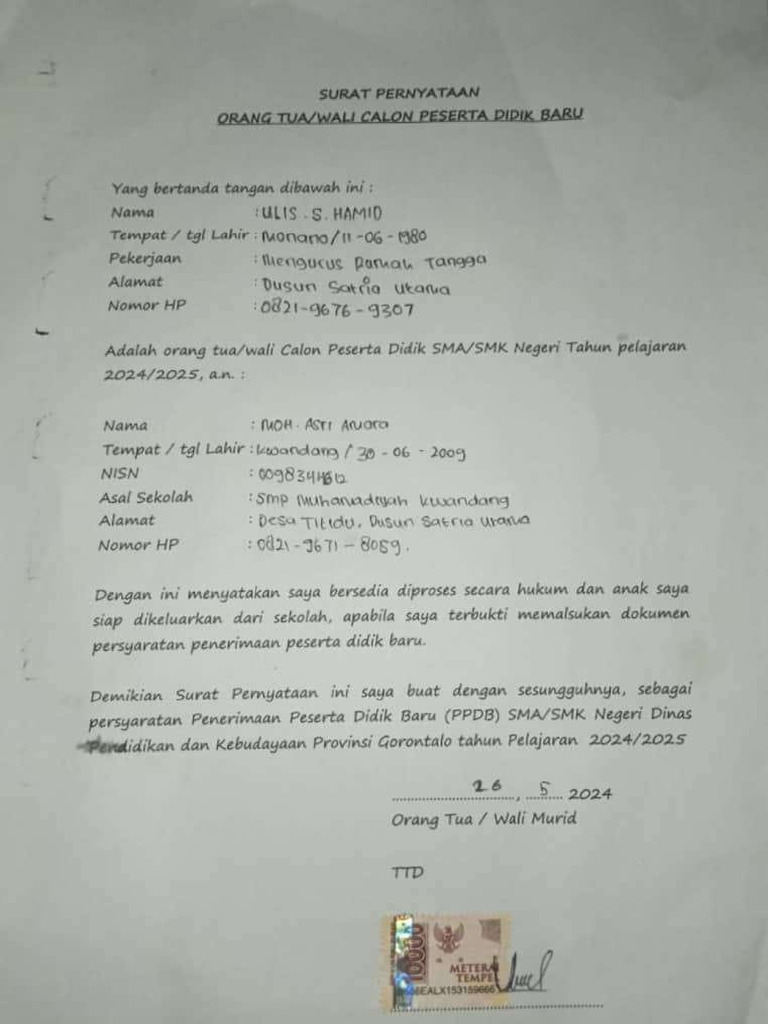 SURAT PERNYATAAN
ORANG TUA/WALI CALON PESERTA DIDIK BARU
Yang bertanda tangan dibawah ini :
Nama : ULIS . S. HAMID
Tempat / tgl Lahir : Monano/11-06-1980
Pekerjaan : Mengurus Rumah Tangga
Alamat : Dusun Satria Utara
Nomor HP : 0821-9676-9307
Adalah orang tua/wali Calon Peserta Didik SMA/SMK Negeri Tahun pelajaran
2024/2025, a.n. :
Nama : MOH.
Tempat / tgl Lahir : Kwandang / 30 - 06 - 2009
NISN :
Asal Sekolah : SMP Muhamadiyah Kwandang
Alamat : Desa Titidu, Dusun Satria Utara
Nomor HP : 0821-9671-8059.
Dengan ini menyatakan saya bersedia diproses secara hukum dan anak saya
siap dikeluarkan dari sekolah, apabila saya terbukti memalsukan dokumen
persyaratan penerimaan peserta didik baru.
Demikian Surat Pernyataan ini saya buat dengan sesungguhnya, sebagai
persyaratan Penerimaan Peserta Didik Baru (PPDB) SMA/SMK Negeri Dinas
Pendidikan dan Kebudayaan Provinsi Gorontalo tahun Pelajaran 2024/2025
26, 5 2024
Orang Tua / Wali Murid
TTD
10000
METERAI
TEMPEL